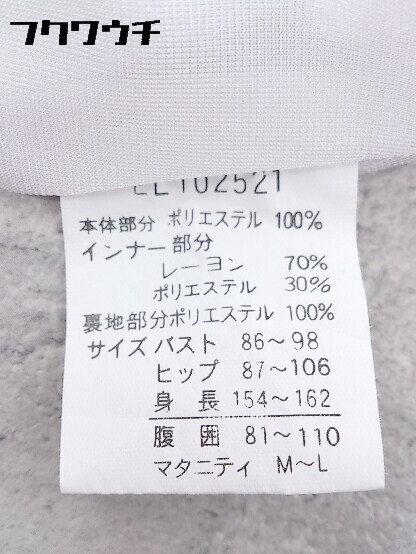 フクワウチ
LL102521
本体部分 ポリエステル 100%
インナー部分
レーヨン 70%
ポリエステル 30%
裏地部分ポリエステル 100%
サイズ バスト 86～98
ヒップ 87～106
身長 154～162
腹囲 81～110
マタニティ M～L